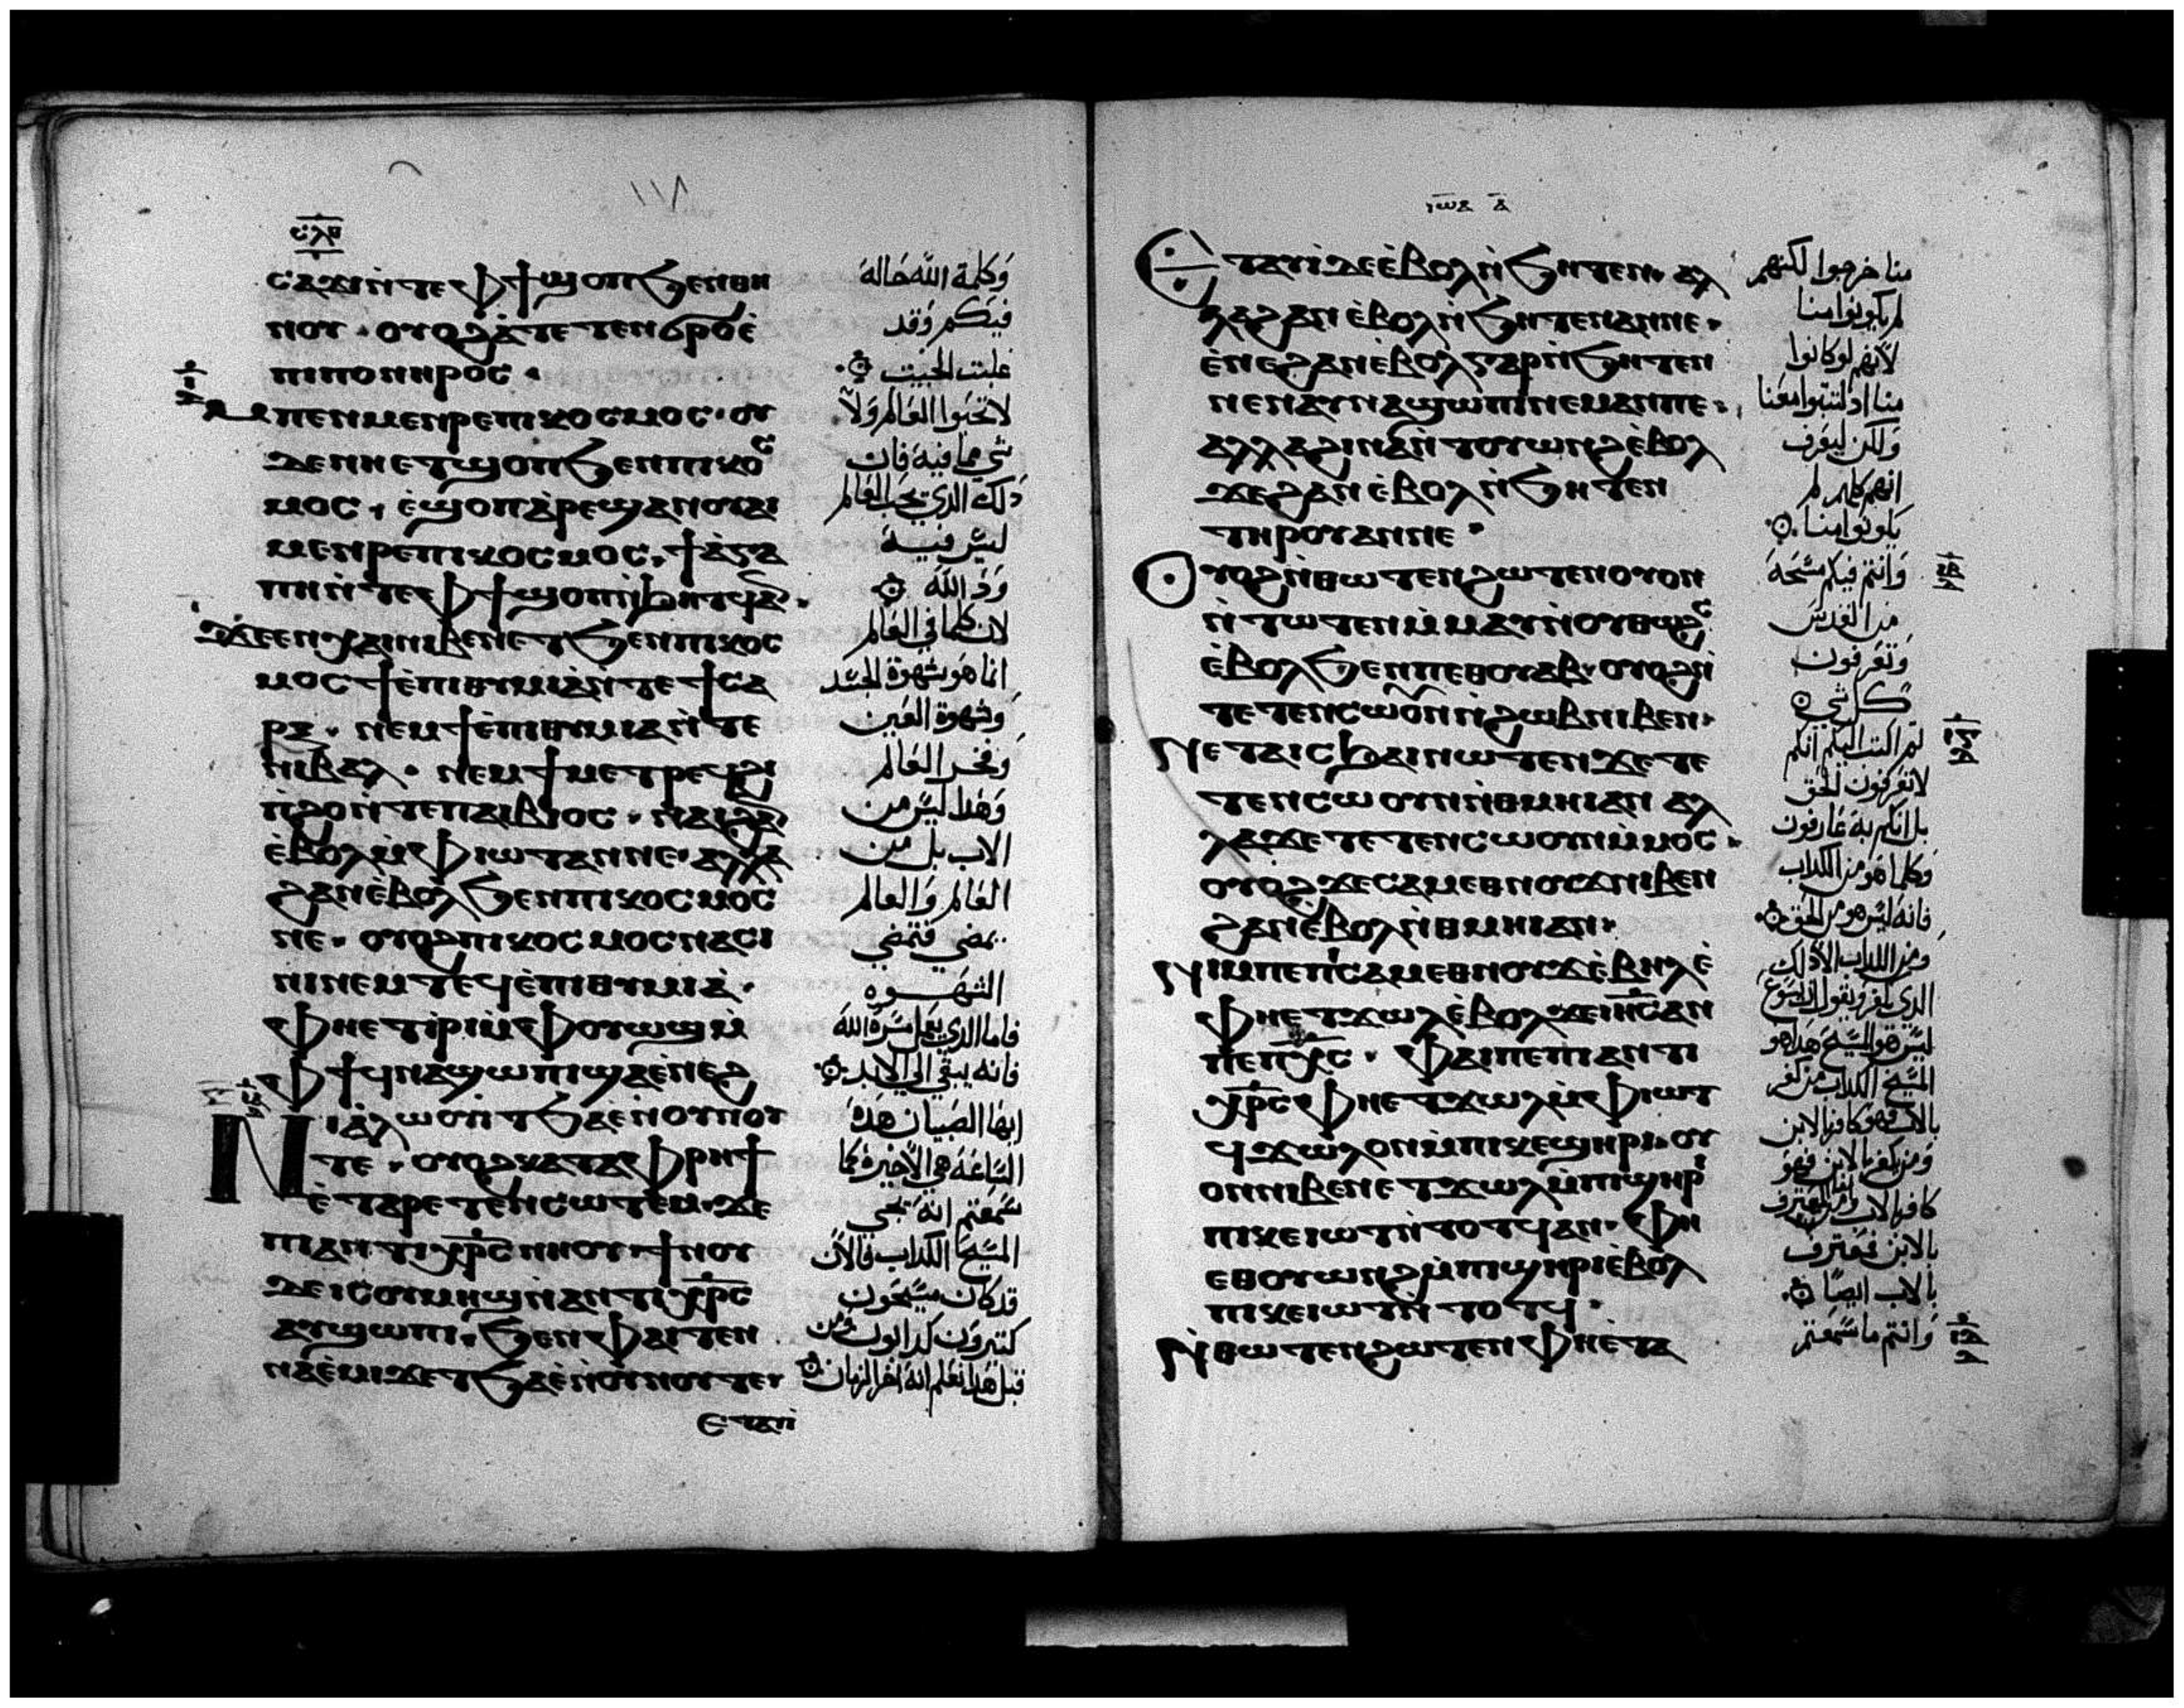 ١١٨
ⲥⲗ︦ⲟ
ⲥⲁϫⲓ ⲛ̀ⲧⲉ ⲫϯ ϣⲟⲡ ϧⲉⲛ ⲑⲏ
ⲛⲟⲩ ⲟⲩⲟϩ ⲁ̀ⲧⲉⲧⲉⲛϭⲣⲟ ⲉ̀
ⲡⲓⲡⲟⲛⲏⲣⲟⲥ
ⲙⲡⲉⲛⲙⲉⲛⲣⲉ ⲡⲓⲕⲟⲥⲙⲟⲥ ⲟⲩ
ⲇⲉ ⲛⲏⲉⲧϣⲟⲡ ϧⲉⲛ ⲡⲓⲕⲟⲥ
ⲙⲟⲥ ⲉ̀ϣⲟⲡ ⲁ̀ⲣⲉϣⲁⲛ ⲟⲩⲁⲓ
ⲙⲉⲛⲣⲉ ⲡⲓⲕⲟⲥⲙⲟⲥ ϯⲁ̀ⲅⲁ
ⲡⲏ ⲛ̀ⲧⲉ ⲫϯ ϣⲟⲡ ⲛ̀ϧⲏⲧϥ ⲁⲛ
ϫⲉ ⲉⲛⲭⲁⲓ ⲛⲓⲃⲉⲛ ⲉⲧϧⲉⲛ ⲡⲓⲕⲟⲥ
ⲙⲟⲥ ϯⲉ̀ⲡⲓⲑⲩⲙⲓⲁ̀ ⲛ̀ⲧⲉ ϯⲥⲁ
ⲣⲝ ⲛⲉⲙ ϯⲉ̀ⲡⲓⲑⲩⲙⲓⲁ ⲛ̀ⲧⲉ
ⲛⲓⲃⲁⲗ ⲛⲉⲙ ϯⲙⲉⲧⲣⲉϥϩⲓ
ⲛ̀ϩⲟ ⲛ̀ⲧⲉ ⲡⲁⲓⲃⲓⲟⲥ ⲛⲁⲓ ϩⲁⲛ
ⲉ̀ⲃⲟⲗ ⲙ̀ⲫⲓⲱⲧ ⲁⲛ ⲛⲉ ⲁⲗⲗⲁ
ϩⲁⲛ ⲉ̀ⲃⲟⲗ ϧⲉⲛ ⲡⲓⲕⲟⲥⲙⲟⲥ
ⲛⲉ ⲟⲩⲟϩ ⲡⲓⲕⲟⲥⲙⲟⲥ ⲛⲁⲥⲓ
ⲛⲓ ⲛⲉⲙ ⲧⲉϥⲉ̀ⲡⲓⲑⲩⲙⲓⲁ̀
ⲫⲏⲉⲧⲓ̀ⲣⲓ ⲙ̀ⲫⲟⲩⲱϣ ⲙ̀
ⲫϯ ϥⲛⲁϣⲱⲡⲓ ϣⲁ ⲉ̀ⲛⲉϩ
ⲛⲓⲁ̀ⲗⲱⲟⲩⲓ̀ ⲧϧⲁⲉ̀ ⲛ̀ⲟⲩⲛⲟⲩ
ⲧⲉ ⲟⲩⲟϩ ⲕⲁⲧⲁ ⲫⲣⲏϯ
ⲉ̀ⲧⲁⲣⲉⲧⲉⲛⲥⲱⲧⲉⲙ ϫⲉ
ⲡⲓⲁⲛⲧⲓⲭⲣⲥ ⲛⲏⲟⲩ ϯⲛⲟⲩ
ⲇⲉ ⲓⲥ ⲟⲩⲙⲏϣ ⲛ̀ⲁⲛⲧⲓⲭⲣⲥ
ⲁⲩϣⲱⲡⲓ ϧⲉⲛ ⲫⲁⲓ ⲧⲉⲛ
ⲛⲁⲉ̀ⲙⲓ ϫⲉ ⲧϧⲁⲉ̀ ⲛ̀ⲟⲩⲛⲟⲩ ⲧⲉ
ⲉⲧⲁⲩⲓ̀
وكلمة الله حاله
فيكم وقد
غلبت الخبيث
لا تحبوا العالم ولا
شي مما فيه فان
ذلك الذي يحب العالم
ليس فيه
ود الله
لان كلما في العالم
انما هو شهوة الجسد
وشهوة العين
وفخر العالم
وهذا ليس من
الاب بل من
العالم والعالم
يمضي فتمضي
الشهوه
فاما الذي يعمل مسرة الله
فانه يبقي الي الابد
ايها الصبيان هذه
الساعة هي الاخيرة كما
سمعتم انه يجي
المسيح الكداب فالان
قد كان مسيحون
كتيرون كدابون ومن
قبل هذا نعلم انه اخر الزمان
ⲓⲱⲁ ⲁ̅
ⲉⲧⲁⲩⲓ̀ ⲇⲉ ⲉ̀ⲃⲟⲗ ⲛ̀ϧⲏⲧⲉⲛ ⲁⲗ
ⲗⲁ ϩⲁⲛ ⲉ̀ⲃⲟⲗ ⲛ̀ϧⲏⲧⲉⲛ ⲁⲛ ⲛⲉ
ⲉ̀ⲛⲉ ϩⲁⲛ ⲉ̀ⲃⲟⲗ ⲅⲁⲣ ⲛ̀ϧⲏⲧⲉⲛ
ⲛⲉ ⲛⲁⲩⲛⲁϣⲱⲡⲓ ⲛⲉⲙⲁⲛ ⲡⲉ
ⲁⲗⲗⲁ ϩⲓⲛⲁ ⲛ̀ⲧⲟⲩⲱⲛϩ ⲉ̀ⲃⲟⲗ
ϫⲉ ϩⲁⲛ ⲉ̀ⲃⲟⲗ ⲛ̀ϧⲏⲧⲉⲛ
ⲧⲏⲣⲟⲩ ⲁⲛ ⲛⲉ
ⲟⲩⲟϩ ⲛ̀ⲑⲱⲧⲉⲛ ϩⲱⲧⲉⲛ ⲟⲩⲟⲛ
ⲛ̀ⲧⲱⲧⲉⲛ ⲙ̀ⲙⲁⲩ ⲛ̀ⲟⲩⲑⲱϩⲥ
ⲉ̀ⲃⲟⲗ ϧⲉⲛ ⲡⲉⲑⲟⲩⲁⲃ ⲟⲩⲟϩ
ⲧⲉⲧⲉⲛⲥⲱⲟⲩⲛ ⲛ̀ϩⲱⲃ ⲛⲓⲃⲉⲛ
ⲛⲉⲧⲁⲓⲥϧⲁⲓ ⲛⲱⲧⲉⲛ ϫⲉ ⲧⲉ
ⲧⲉⲛⲥⲱⲟⲩⲛ ⲛ̀ⲑⲙⲏⲓ ⲁⲛ ⲁⲗ
ⲗⲁ ϫⲉ ⲧⲉⲧⲉⲛⲥⲱⲟⲩⲛ ⲙ̀ⲙⲟⲥ
ⲟⲩⲟϩ ϫⲉ ⲥⲁⲙⲉⲑⲛⲟⲩϫ ⲛⲓⲃⲉⲛ
ϩⲁⲛ ⲉ̀ⲃⲟⲗ ⲛ̀ⲑⲙⲏⲓ ⲁⲛ
ⲛⲓⲙ ⲡⲉ ⲡⲥⲁⲙⲉⲑⲛⲟⲩϫ ⲉ̀ⲃⲏⲗ ⲉ̀
ⲫⲏⲉⲧϫⲱⲗ ⲉ̀ⲃⲟⲗ ϫⲉ ⲓⲏⲥ ⲁⲛ
ⲡⲉ ⲡⲭⲥ ⲫⲁⲓ ⲡⲉ ⲡⲓⲁⲛⲧⲓ
ⲭⲣⲥ ⲫⲏⲉⲧϫⲱⲗ ⲙ̀ⲫⲓⲱⲧ
ϥϫⲱⲗ ⲟⲛ ⲙ̀ⲡⲓⲕⲉϣⲏⲣⲓ ⲟⲩ
ⲟⲛ ⲛⲓⲃⲉⲛ ⲉⲧϫⲱⲗ ⲙ̀ⲡϣⲏⲣⲓ
ⲡⲓⲕⲉⲓⲱⲧ ⲛ̀ⲧⲟⲧϥ ⲁⲛ ⲫⲏ
ⲉⲑⲟⲩⲱⲛϩ ⲙ̀ⲡϣⲏⲣⲓ ⲉ̀ⲃⲟⲗ
ⲡⲓⲕⲉⲓⲱⲧ ⲛ̀ⲧⲟⲧϥ
ⲛ̀ⲑⲱⲧⲉⲛ ϩⲱⲧⲉⲛ ⲫⲏⲉ̀ⲧⲁ
منا خرجوا لكنهم
لم يكونوا منا
لانهم لو كانوا
منا اذ لتبتوا معنا
ولكن ليعرف
انهم كلهم لم
يكونوا منا
وانتم فيكم مسحة
من القدس
وتعرفون
كل شي
لم اكتب اليكم انكم
لا تعرفون الحق
بل انكم به عارفون
وكلما هو من الكداب
فانه ليس هو من الحق
ومن الكداب الا ذلك
الذي يكفر ويقول ان يسوع
ليس هو المسيح هذا هو
المسيح الكداب من كفر
بالاب فهو كافر بالابن
ومن يكفر بالابن فهو
كافر بالاب ومن يعترف
بالابن فيعترف
بالاب ايضا
وانتم ما سمعتم